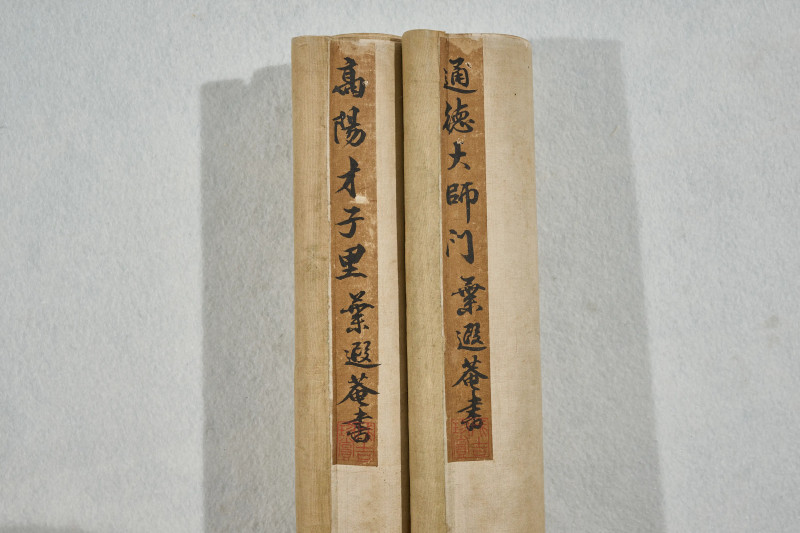 通德大師门 葉遐菴書
高陽才子里 葉遐菴書